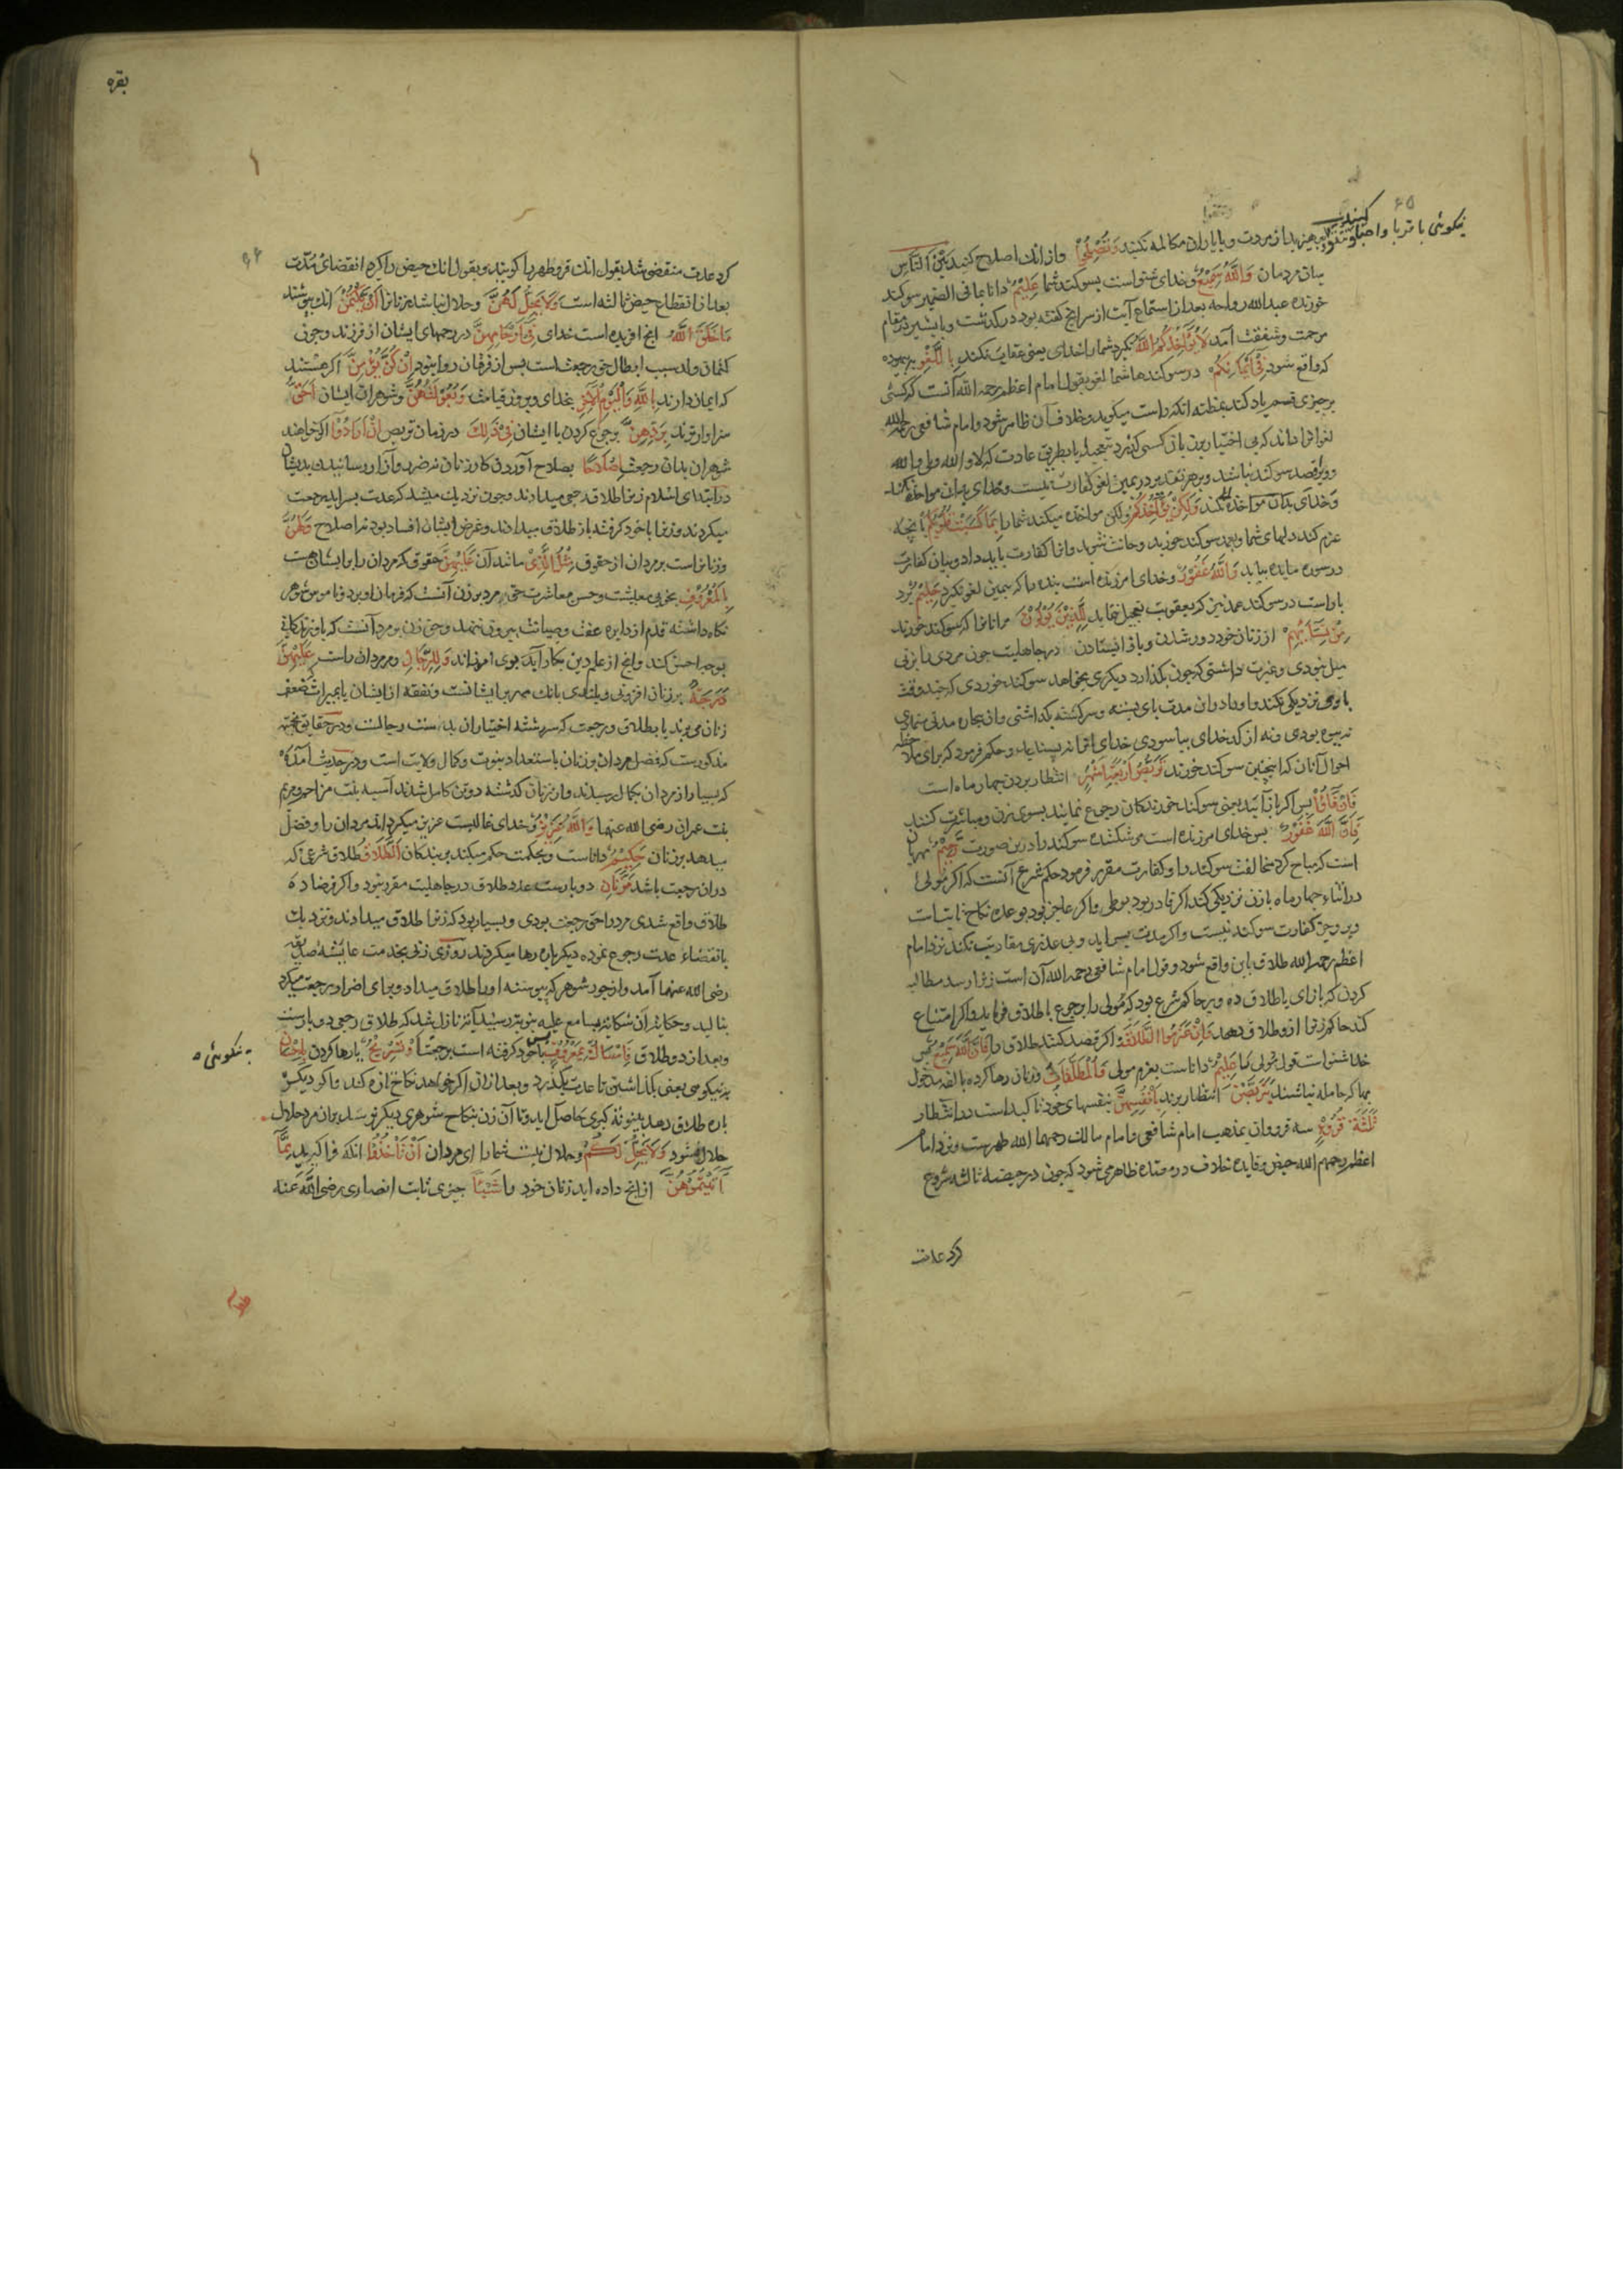 نیکوئی با قربا و احبا
کنید
وتتقوا و بپرهیزید از مردت و با یاران مکالمه نکنید وَتُصْلِحُوا و از انک اصلاح کنید بَیْنَ النَّاسِ
میان مردمان وَاللهُ سَمِیعٌ وخدای شنواست بسوکند شما عَلِیمٌ دانا بما فی الضمیر سوکند
خورنده عبدالله رواحه بعد از استماع آیت از سر انچ کفته بود درکذشت و با بشیر در مقام
مرحمت وشفقت آمد لَا یُؤَاخِذُکُمُ اللهُ نکیرد شما را خدای یعنی عقابت نکند بِاللَّغْوِ بیهوده
که واقع شود فِی أَیْمَانِکُمْ در سوکندهاء شما لغو بقول امام اعظم رحمه الله آنست که کسی
برچیزی قسم یاد کند بمظنه انکه راست میکوید وخلاف آن ظاهر شود و امام شافعی رحمه الله
لغو انرا داند که بی اختیار بر زبان کسی کذرد بتعجیل یا بطریق عادت که لا والله وبلی والله
وویرا قصد سوکند نباشد وبر هر تقدیر در یمین لغو کفارت نیست وخدای بدان مواخذه نکند
وخدای بدان مواخذه نکند وَلَکِنْ یُؤَاخِذُکُمْ ولکن مواخذه میکند شما را بِمَا کَسَبَتْ قُلُوبُکُمْ بآنچه
عزم کند دلهای شما وبعمد سوکند خورید وحانث شوید وانرا کفارت باید داد وبیان کفارت
در سوره مایده بیاید وَاللهُ غَفُورٌ وخدای امرزنده است بنده را که بیمین لغو نکیرد حَلِیمٌ بُرد
باراست در سوکند عمد نیز که بعقوبت تعجیل ننماید لِلَّذِینَ یُؤْلُونَ مر انانرا که سوکند خورند
مِنْ نِسَائِهِمْ از زنان خود دور شدن و باز ایستادن در جاهلیت چون مردی را بزنی
میل نبودی وغیرت داشتی که چون بکذارد دیکری بخواهد سوکند خوردی که چند وقت
با وی نزدیکی نکند واو را دران مدت پای بسته وسرکشته بکذاشتی وان بیچاره مدتی مدید
نه بیوه بودی ونه از کدخدای بیاسودی خدای انرا نه پسندید وحکم فرمود که برای ملاحظه
احوال آنان که اینچنین سوکند خورند تَرَبُّصُ أَرْبَعَةِ أَشْهُرٍ انتظار بردن چهار ماه است
فَإِنْ فَاءُوا پس اکر باز آیند یعنی سوکند خورندکان رجوع نمایند بسوی زن ومباشرت کنند
فَإِنَّ اللهَ غَفُورٌ پس خدای امرزنده است مر شکننده سوکند را درین صورت رَحِیمٌ مهربان
است که مباح کرد مخالفت سوکند را وکفارت مقرر فرمود حکم شرع آنست که اکر مولی
در اثناء چهار ماه با زن نزدیکی کند اکر قادر بود بوطی واکر عاجز بود بوعده نکاح ثابتست
وبروجز کفارت سوکند نیست واکر مدت بسر اید وبی عذری مقاربت نکند نزد امام
اعظم رحمه الله طلاق باین واقع شود وقول امام شافعی رحمه الله آن است زنرا رسد مطالبه
کردن که باز ای یا طلاق ده وبرحاکم شرع بود که مولی را برجوع یا طلاق فرماید واکر امتناع
کند حاکم زنرا ازو طلاق دهد وَإِنْ عَزَمُوا الطَّلَاقَ واکر قصد کنند طلاق را فَإِنَّ اللهَ سَمِیعٌ پس
خدا شنواست قول مولی را عَلِیمٌ داناست بعزم مولی وَالْمُطَلَّقَاتُ وزنان رها کرده بالغه مدخول
بها که حامله نباشند یَتَرَبَّصْنَ انتظار برند بِأَنْفُسِهِنَّ بنفسهای خود تاکیداست در انتظار
ثَلَثَةَ قُرُوءٍ سه قرو وان بمذهب امام شافعی وامام مالک رحمهما الله طهرست ونزد امام
اعظم رحمهم الله حیض وفایده خلاف در معتده ظاهر می شود که چون در حیضه ثالثه شروع
کرد عدت
بقره
کرد عدت منقضی شد بقول انک قرو طهر را کویند وبقول انک حیض را کیرد انقضای مدت
بعد از انقطاع حیض ثالثه است وَلَا یَحِلُّ لَهُنَّ وحلال نباشد مر زنانرا أَنْ یَکْتُمْنَ انک بپوشند
مَا خَلَقَ اللهُ انچ افریده است خدای فِی أَرْحَامِهِنَّ در رحمهای ایشان از فرزند وچون
کتمان ولد سبب ابطال حق رجعت است پس از فرقان روا نبود إِنْ کُنَّ یُؤْمِنَّ اکر هستند
که ایمان دارند بِاللهِ وَالْیَوْمِ الْآخِرِ بخدای وبروز قیامت وَبُعُولَتُهُنَّ وشوهران ایشان أَحَقُّ
سزاوارترند بِرَدِّهِنَّ برجوع کردن با ایشان فِی ذَلِکَ در زمان تربص إِنْ أَرَادُوا اکر خواهند
شوهران بدان رجعت إِصْلَاحًا بصلاح آوردن کار زنان نه ضرر وآزار رسانیدن بدیشان
در ابتدای اسلام زنرا طلاق رجعی میدادند وچون نزدیک میشد که عدت بسر اید رجعت
میکردند وزنرا با خود کرفته باز طلاق میدادند وغرض ایشان افساد بود نه اصلاح وَلَهُنَّ
وزنانراست بر مردان از حقوق مِثْلُ الَّذِی مانند آن عَلَیْهِنَّ حقوق که مردان را بر ایشان هست
بِالْمَعْرُوفِ بخوبی معیشت وحسن معاشرت حق مرد بر زن آنست که فرمان او برد وناموس شوهر
نکاه داشته قدم از دایره عفت وصیانت بیرون ننهد وحق زن بر مرد آنست که با وزندکانی
بوجه احسن کند وانچ از علم دین بکار آید بوی آموزاند وَلِلرِّجَالِ ومر مردان راست عَلَیْهِنَّ
دَرَجَةٌ بر زنان افزونی وبلندی بانک مهر بر ایشانست ونفقه از ایشان یا بمیراث که ضعف
زنان می برند یا بطلاق ورجعت که سر رشته اختیار ان بدست رجالست ودر حقایق نجمیه
مذکورست که فضل مردان بر زنان باستعداد نبوت وکمال ولایت است ودر حدیث آمده
که بسیار از مردان بکمال رسیدند واز زنان کذشته دو تن کامل شدند آسیه بنت مزاحم ومریم
بنت عمران رضی الله عنهما وَاللهُ عَزِیزٌ وخدای غالبست عزیز میکرداند مردان را وفضل
میدهد بر زنان حَکِیمٌ داناست وبحکمت حکم میکند بر بندکان الطَّلَاقُ طلاق شرعی که
دران رجعت باشد مَرَّتَانِ دو بارست عدد طلاق در جاهلیت مقرر نبود واکر فرضا ده
طلاق واقع شدی مرد را حق رجعت بودی وبسیار بود که زنرا طلاق میدادند ونزدیک
بانقضاء عدت رجوع نموده دیکر باره رها میکردند روزی زنی بخدمت عایشه صدیقه
رضی الله عنها آمد واز جور شوهر که پیوسته او را طلاق میداد وبرای اضرار رجعت میکرد
بنالید وحکایت آن شکایت بسامع علیه نبویه رسید آیت نازل شد که طلاق رجعی دو بارست
وبعد از دو طلاق فَإِمْسَاکٌ بِمَعْرُوفٍ پس با خود کرفته است برجعت أَوْ تَسْرِیحٌ یا رها کردن بِإِحْسَانٍ
به نیکوئی
به نیکویی یعنی بکذاشتن تا عدت بکذرد وبعد ازان اکر خواهد نکاح تازه کند واکر دیکر
باره طلاق دهد بینونة کبری حاصل اید وتا آن زن بنکاح شوهری دیکر نرسد بران مرد حلال
حلال نشود وَلَا یَحِلُّ لَکُمْ وحلال نیست شما را ای مردان أَنْ تَأْخُذُوا انکه فرا کیرید مِمَّا
آتَیْتُمُوهُنَّ از انچ داده اید زنان خود را شَیْئًا چیزی ثابت انصاری رضی الله عنه